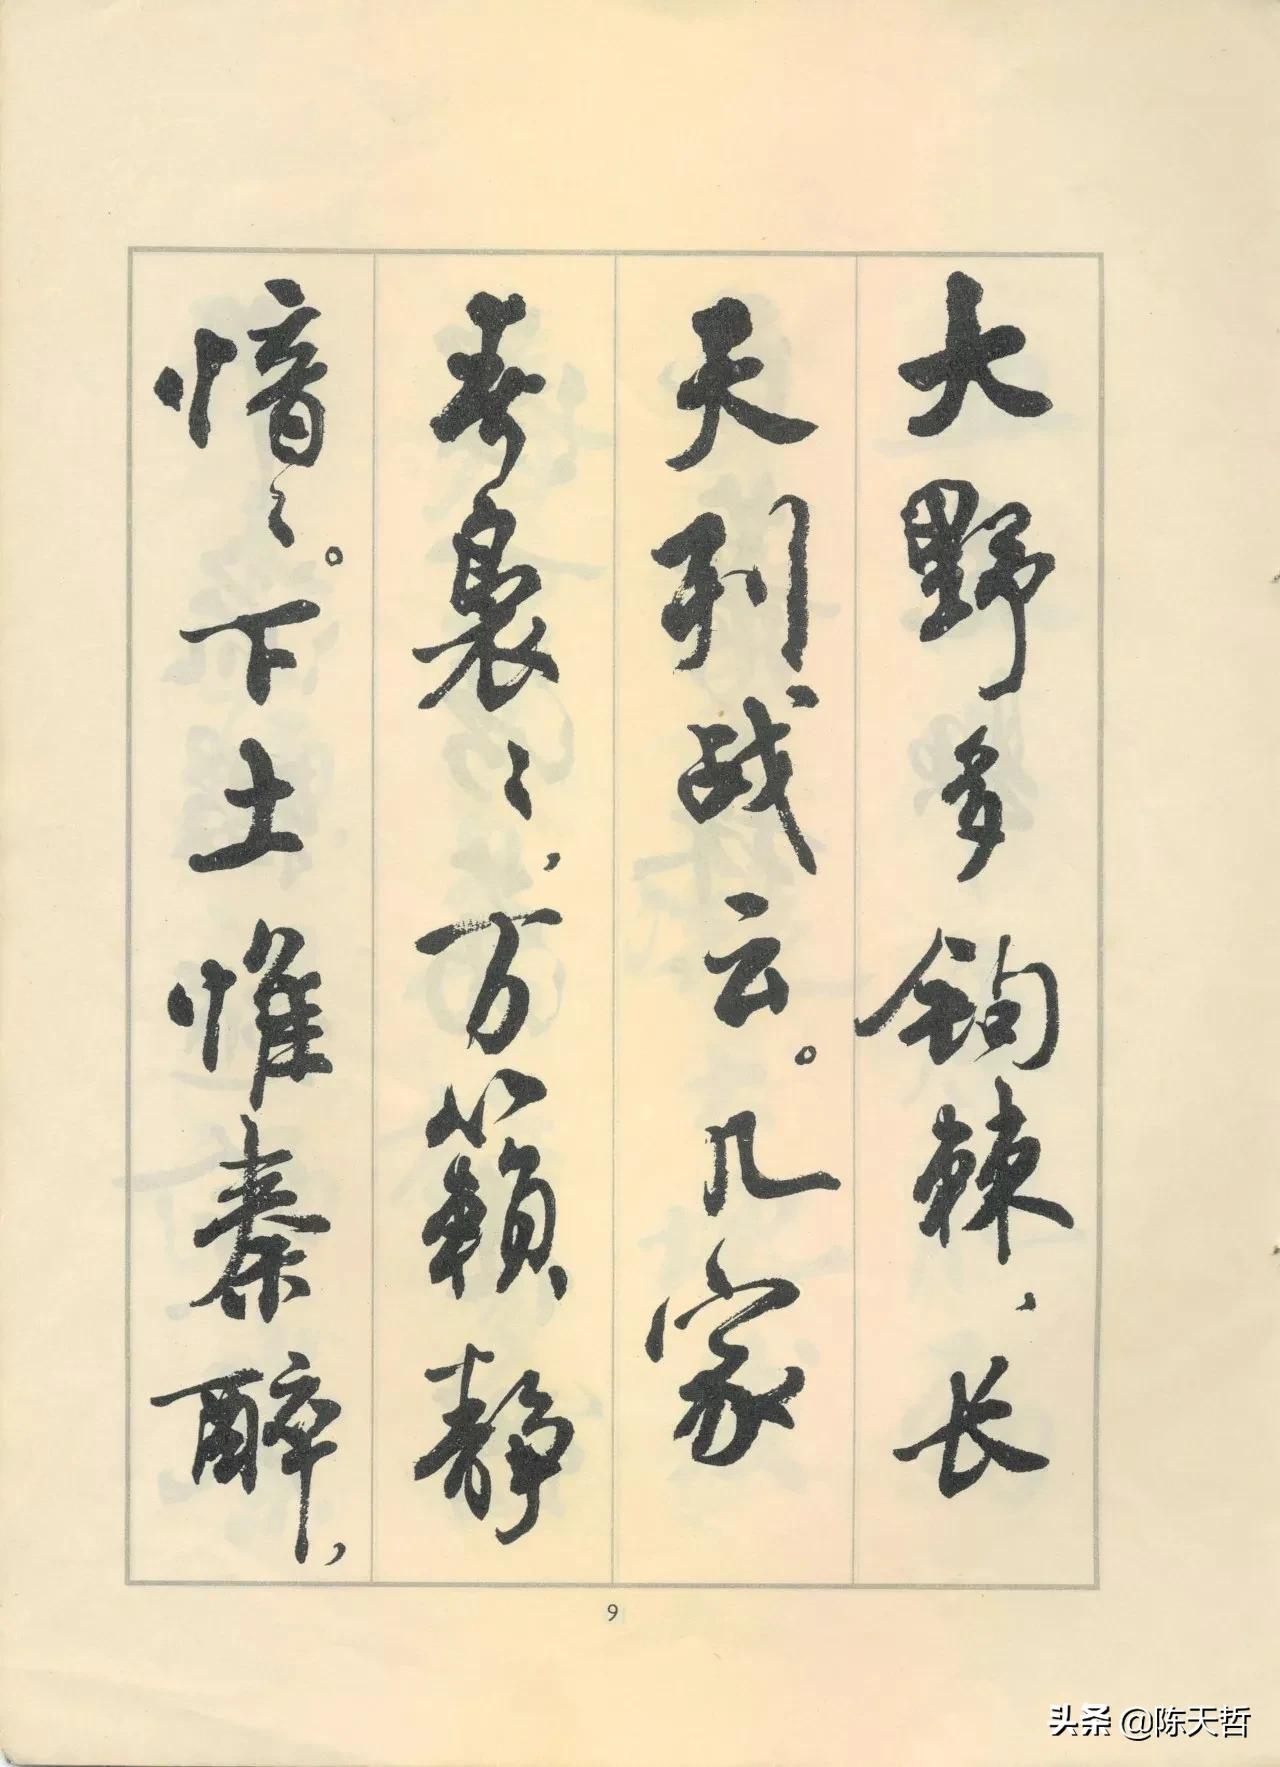 大野多鉤棘，长
天列战云。几家
春裊〻，万籟静
愔〻。下土惟秦醉，
9
头条 @陈天哲